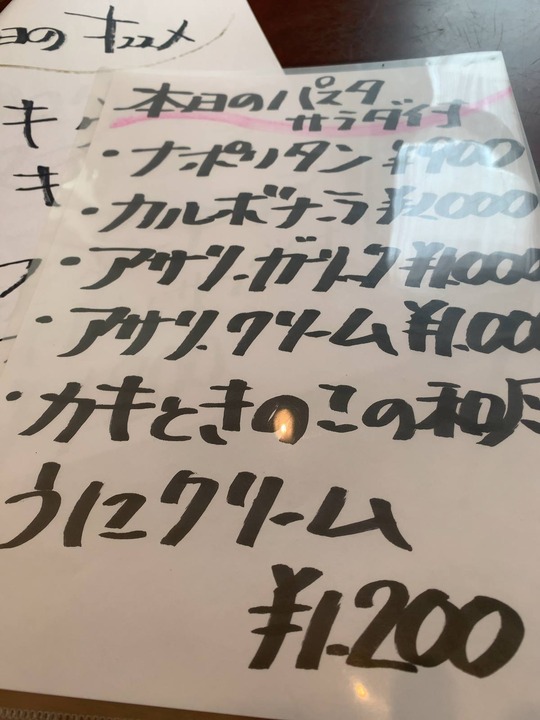 本日のパスタ
サラダ付
・ナポリタン ¥900
・カルボナーラ ¥1.000
・アサリ.ガーリック ¥1.000
・アサリ.クリーム ¥1.000
・カキときのこの和風
うにクリーム
¥1.200